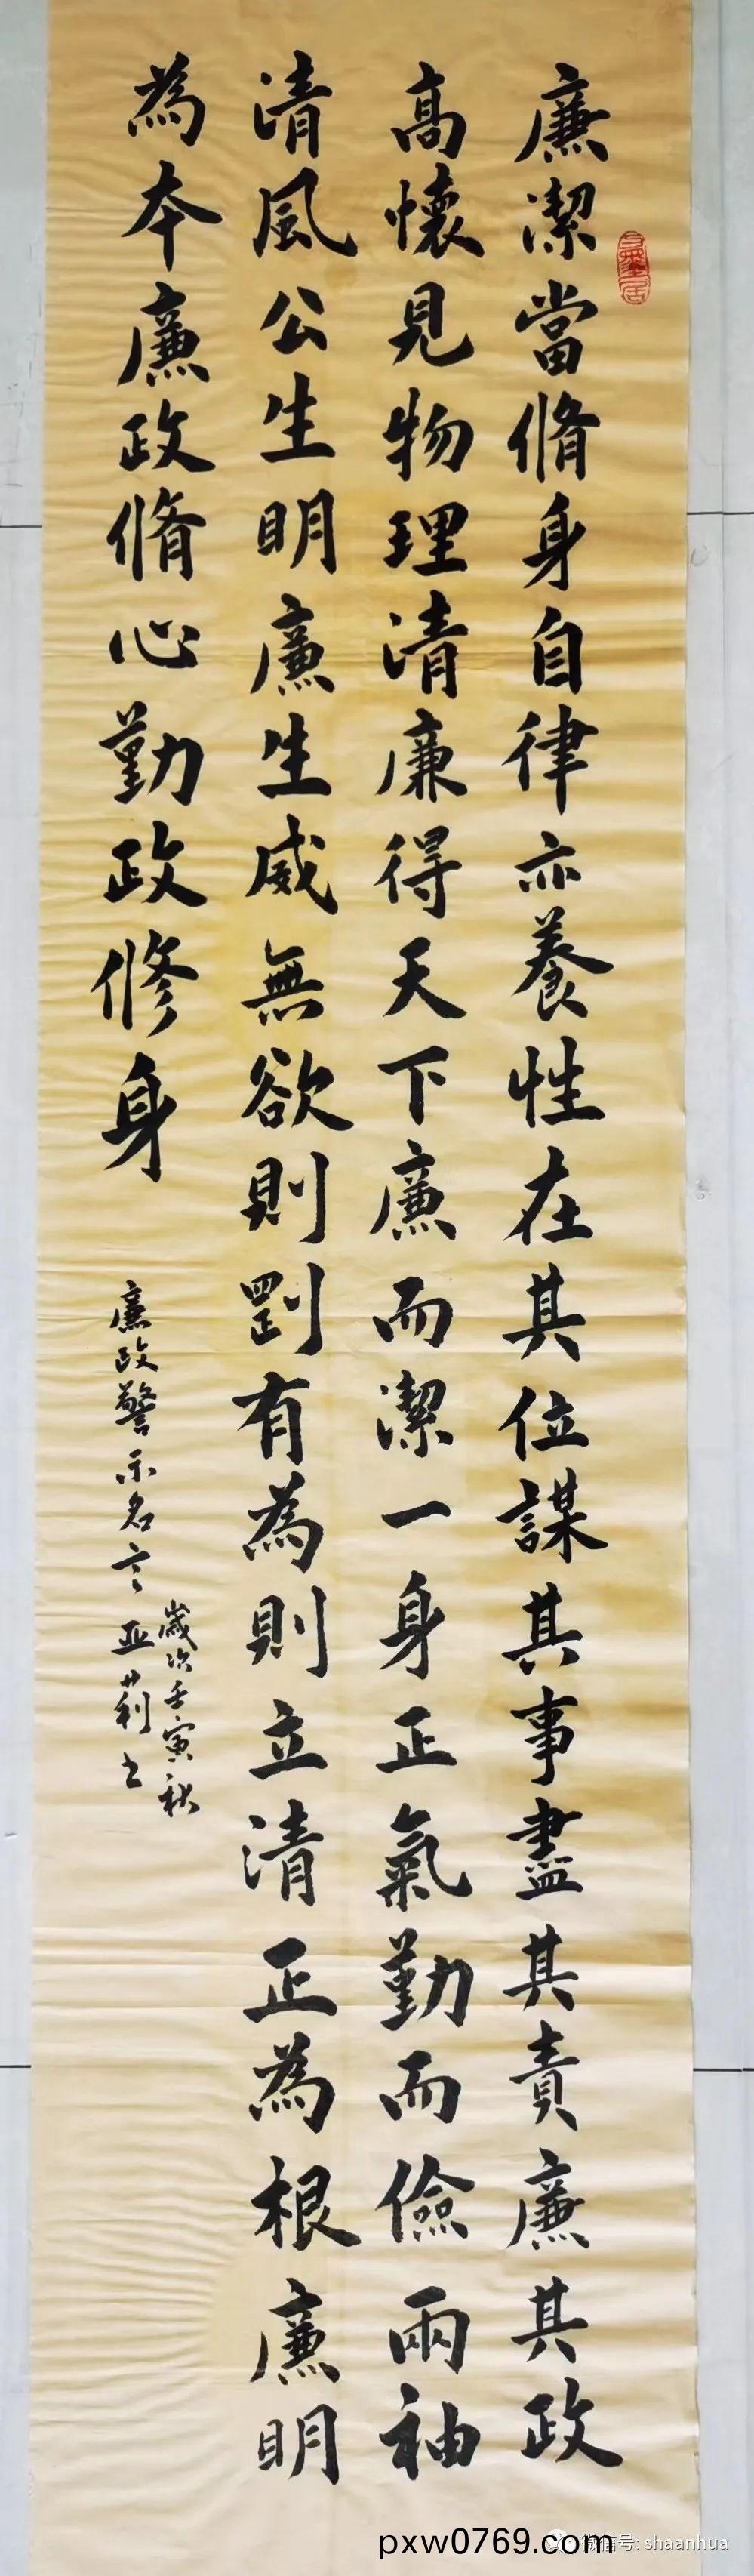 廉潔當脩身自律亦養性在其位謀其事盡其責廉其政
高懷見物理清廉得天下廉而潔一身正氣勤而儉兩袖
清風公生明廉生威無欲則罰有為則立清正為根廉明
為本廉政脩心勤政修身
歲次壬寅秋
廉政警示名言 亚莉书
pxw0769.com
微信号: shaanhua